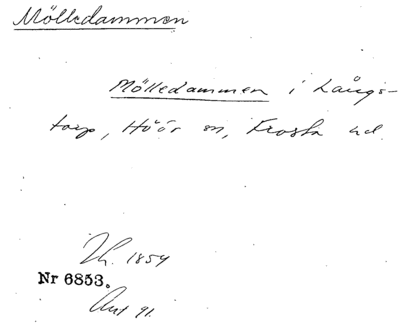 Mölledammen
Mölledammen i Långs-
torp, Höör sn, Frosta hd.
Th. 1854
Nr 6853.
Ant 91.